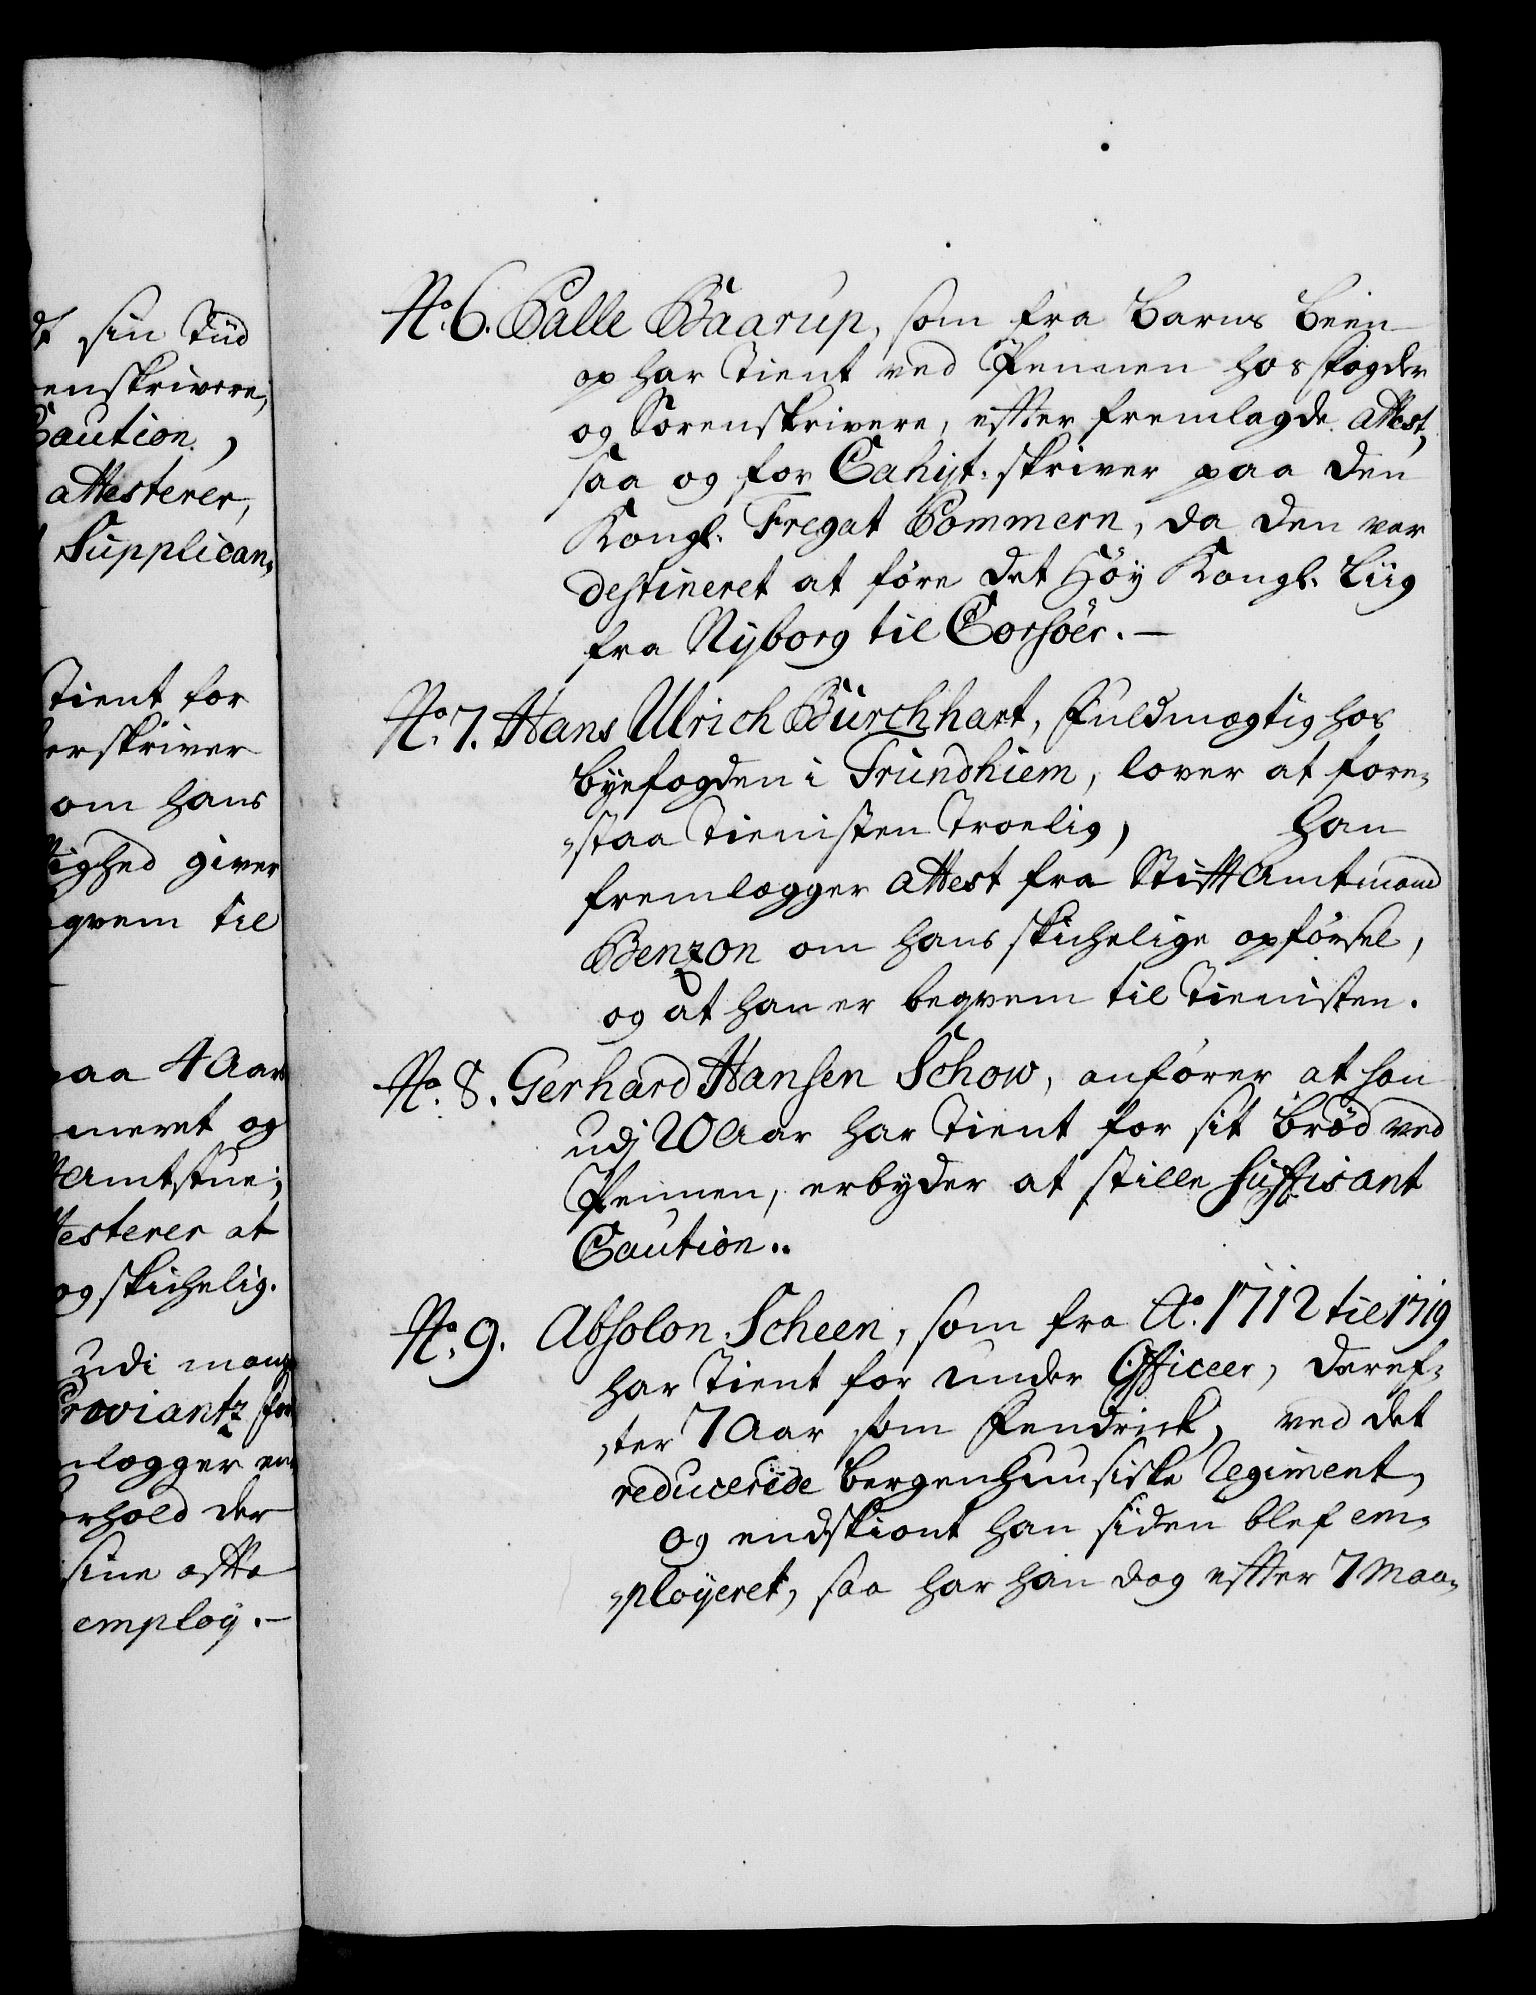 dt sin Tiid
enskrivere,
Caution,
attesterer,
Supplican„
Tient for
erskriver
om hans
ighed giver
qvem til
paa 4 Aar
meret og
Amtstue;
testerer at
og skichelig.
udi mange
Proviantz for
lægger en
rhold der
sine assta
employ.—
No. 6. Palle Baarup, som fra Barns Been
op har Tient ved Pennen hos Fogder
og Sorenskrivere, effter fremlagde attest,
saa og for Cahyt-skriver paa den
Kongl. Fregat Pommern, da den var
destineret at føre det Høy Kongl. Liig
fra Nyborg til Corsöer.—
No. 7. Hans Ulrich Burchhart, Fuldmægtig hos
Byefogden i Trundhiem, lover at fore„
„staa Tienisten Troelig, han
fremlægger attest fra Stifft Amtmand
Benzon om hans skichelige opførsel,
og at han er beqvem til Tienisten.
No. 8. Gerhard Hansen Schow, anfører at han
udj 20 Aar har Tient for sit Brød ved
Pennen, erbyder at stille suffisant
Caution..
No. 9. Absolon Scheen, som fra Ao. 1712 til 1719
har Tient for under Officeer, deref„
„ter 7 Aar som Fendrick, ved det
reducerede Bergenhuusiske Regiment,
og endskiønt han siden blef em„
„ployeret, saa har han dog effter 7 Maa„